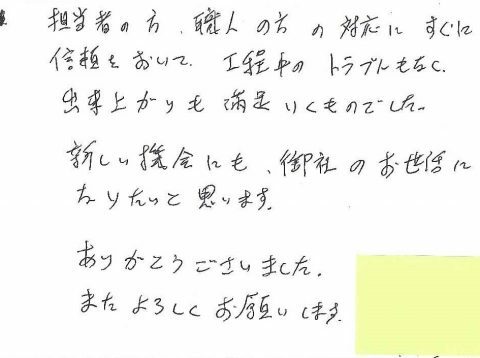 担当者の方、職人の方の対応にすぐに
信頼をおいて、工程中のトラブルもなく、
出来上がりも満足いくものでした。
新しい機会にも、御社のお世話に
なりたいと思います。
ありがとうございました。
またよろしくお願いします。